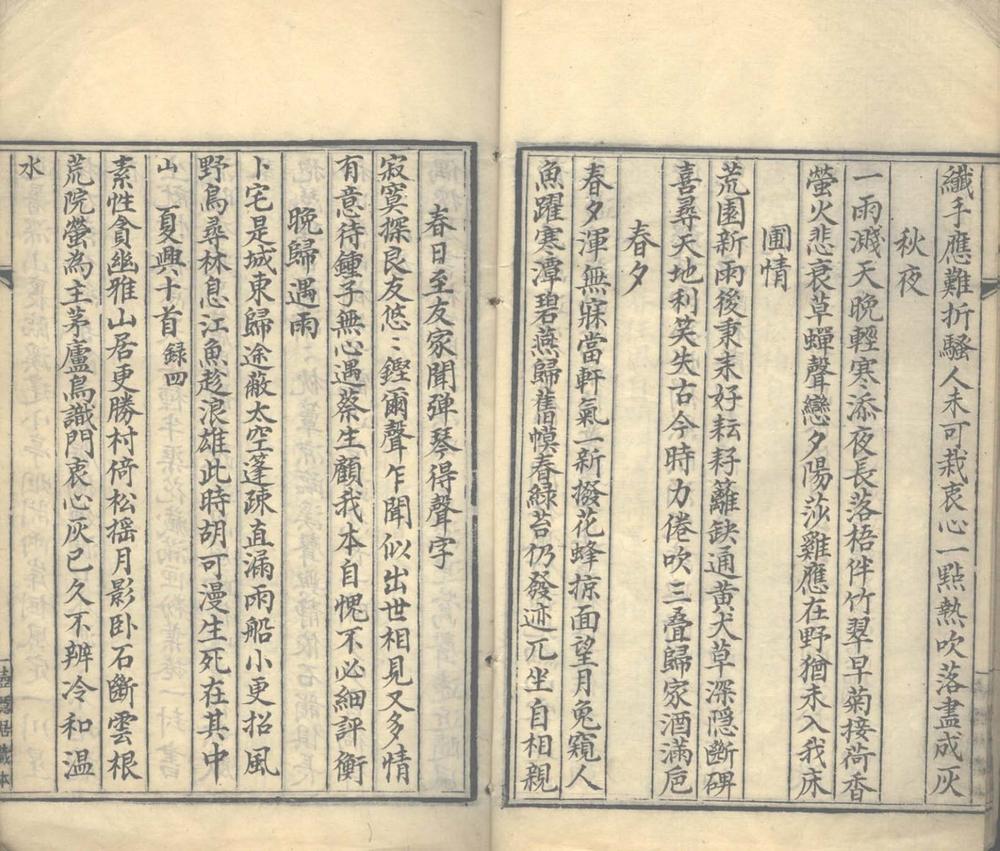 纖手應難折騷人未可栽衷心一點熱吹落盡成灰
秋夜
一雨濺天晚輕寒添夜長落梧伴竹翠早菊接荷香
螢火悲衰草蟬聲戀夕陽莎雞應在野猶未入我床
圃情
荒園新雨後秉耒好耘耔籬缺通黃犬草深隱斷碑
喜尋天地利笑失古今時力倦吹三叠歸家酒滿卮
春夕
春夕渾無寐當軒氣一新撥花蜂掠面望月兔窺人
魚躍寒潭碧燕歸舊幙春緑苔仍發迹兀坐自相親
春日至友家聞弹琴得聲字
寂寞探良友悠〻鏗爾聲乍聞似出世相見又多情
有意待鍾子無心遇蔡生顧我本自愧不必細評衡
晚歸遇雨
卜宅是城東歸途蔽太空篷疎直漏雨船小更招風
野鳥尋林息江魚趁浪雄此時胡可漫生死在其中
山夏興十首録四
素性貪幽雅山居更勝村倚松摇月影卧石斷雲根
荒院螢為主茅廬鳥識門衷心灰已久不辨冷和温
水
壺隱居藏本